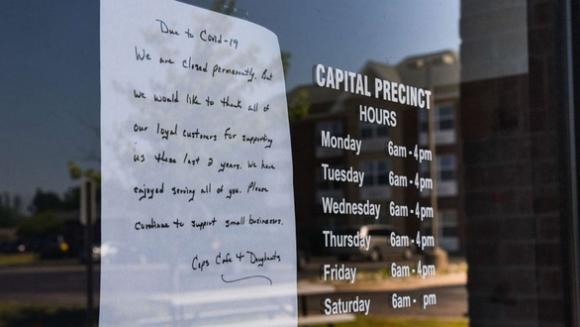 Due to Covid-19
We are closed permanently. But
we would like to thank all of
our loyal customers for supporting
us these last 2 years. We have
enjoyed serving all of you. Please
continue to support small businesses.
Cops Cafe & Doughnuts
CAPITAL PRECINCT
HOURS
Monday 6am - 4pm
Tuesday 6am - 4pm
Wednesday 6am - 4pm
Thursday 6am - 4pm
Friday 6am - 4pm
Saturday 6am - pm